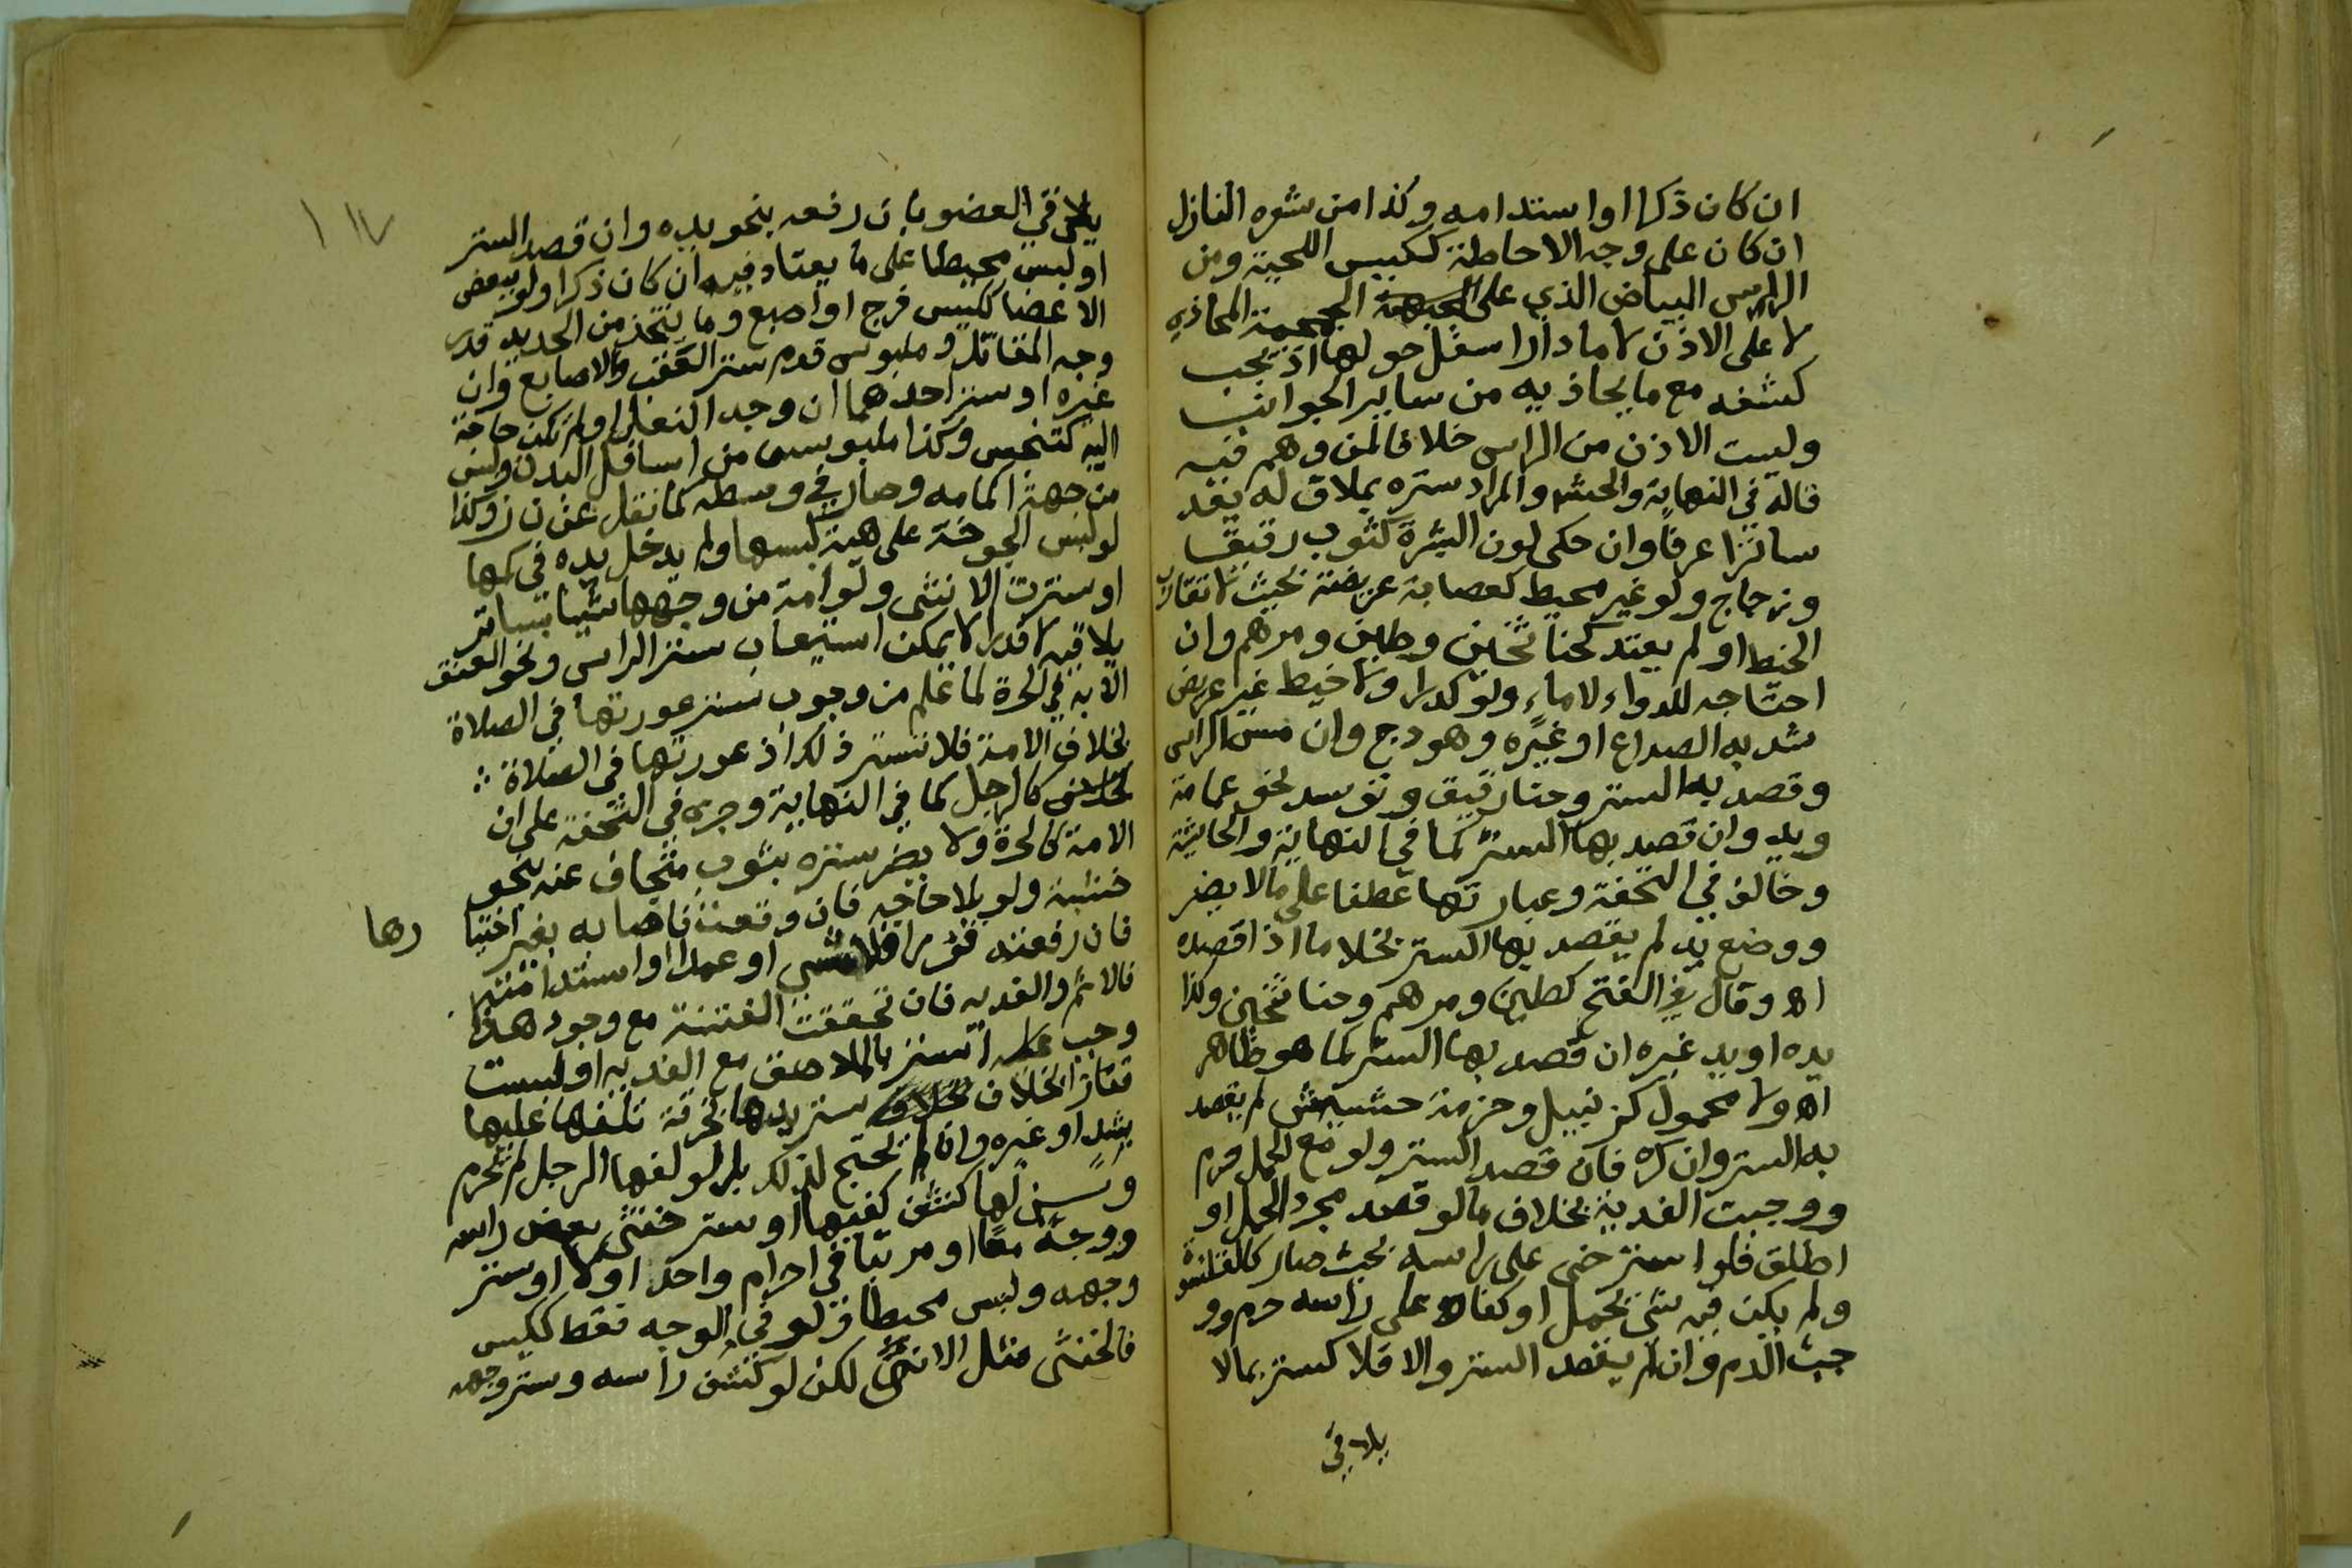 ان كان ذكرا او استدامه وكذا من شعره النازل
ان كان على وجه الاحاطة ككيس اللحية ومن
الراس البياض الذي على الجمجمة المحاذي
لا على الاذن لا ما دار اسفل حولها اذ يجب
كشفه مع ما يحاذيه من ساير الجوانب
وليست الاذن من الراس خلافا لمن وهم فيه
قاله في النهاية والمراد ستره بملاق له يعد
ساترا عرفا وان حكى لون البشرة كثوب رقيق
وزجاج ولو غير محيط كعصابة عريضة بحيث لا تقارب
الخيط او لم يعتد كحنا ثخين وطين ومرهم وان
احتاجه للدواء لا ماء ولو كدرا ولا خيط غير عريض
شد به الصداع او غيره وهودج وان مس الراس
وقصد به الستر وحنا رقيق وتوسد نحو عمامة
ويد وان قصد بها الستر كما في النهاية والحاشية
وخالف في التحفة وعبارتها عطفا على ما لا يضر
ووضع يد لم يقصد بها الستر بخلاف ما اذا قصده
اه وقال في الفتح كطين ومرهم وحنا ثخين وكذا
يده او يد غيره ان قصد بها الستر كما هو ظاهر
اه ولا محمول كزنبيل وحزمة حشيش لم يقصد
به الستر وان كره فان قصد الستر ولو مع الحمل حرم
ووجبت الفدية بخلاف ما لو قصد مجرد الحمل او
اطلق فلو استرخى على راسه بحيث صار كالقلنسوة
ولم يكن فيه شئ يحمل او كفاه على راسه حرم وو
جبت الدم وان لم يقصد الستر والا فلا كستر بما لا
يلاقي
١١٧
يلاقي العضو بان رفعه بنحو يده وان قصد الستر
او لبس محيطا على ما يعتاد فيه ان كان ذكرا ولو ببعض
الاعضا ككيس فرج او اصبع وما يتخذ من الحديد قدر
وجه المقاتل وملبوس قدم ستر العقب والاصابع وان
غيره او ستر احدهما ان وجد النعل او لم تكن حاجة
اليه كتنجس وكذا ملبوس من اسافل البدن ولبس
من جهة اكمامه وصار في وسطه كما نقل عن ن ز وكذا
لو لبس الجوخة على هيئة لبسها ولم يدخل يده في كمها
او سترت الانثى ولو امة من وجهها شيئا بساتر
يلاقيه لا قدرا لا يمكن استيعاب ستر الراس ونحو العنق
الا به في الحرة لما علم من وجوب ستر عورتها في الصلاة
بخلاف الامة فلا تستر ذلك اذ عورتها في الصلاة
كالرجل كما في النهاية وجرى في التحفة على ان
الامة كالحرة ولا يضر ستره بثوب متجاف عنه بنحو
خشبة ولو بلا حاجة فان وقعت فاصابه بغير اختيا رها
فان رفعته فورا فلا شئ او عمدا او استدامته
فالاثم والفدية فان تحققت الفتنة مع وجود هذا
وجب الستر بالملاصق مع الفدية او لبست
قفازا بخلاف ستر يدها بخرقة تلفها عليها
بشد او غيره وان لم تحتج لذلك بل لو لفها الرجل لم تحرم
ويسن لها كشف كفيها او ستر خنثى بعض راسه
ووجهه معا او مرتبا في احرام واحد اولا او ستر
وجهه ولبس محيطا ولو في الوجه فقط ككيس
فالخنثى مثل الانثى لكن لو كشف راسه وستر وجهه